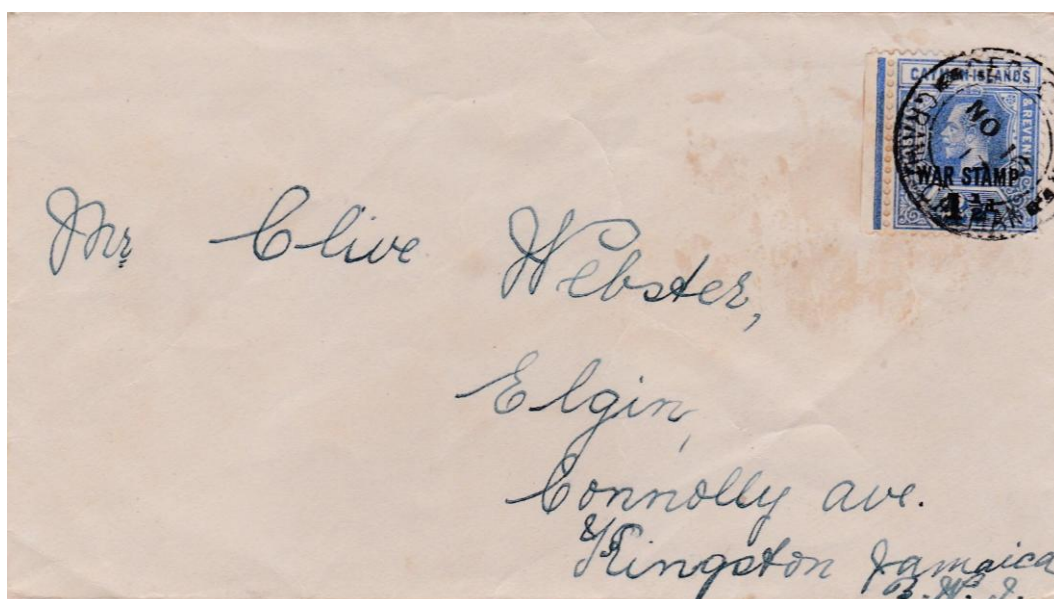 CAYMAN-ISLANDS
& REVENU
NO 10
17
WAR STAMP
1½d
Mr Clive Webster,
Elgin,
Connolly ave.
Kingston Jamaica
B.W.I.